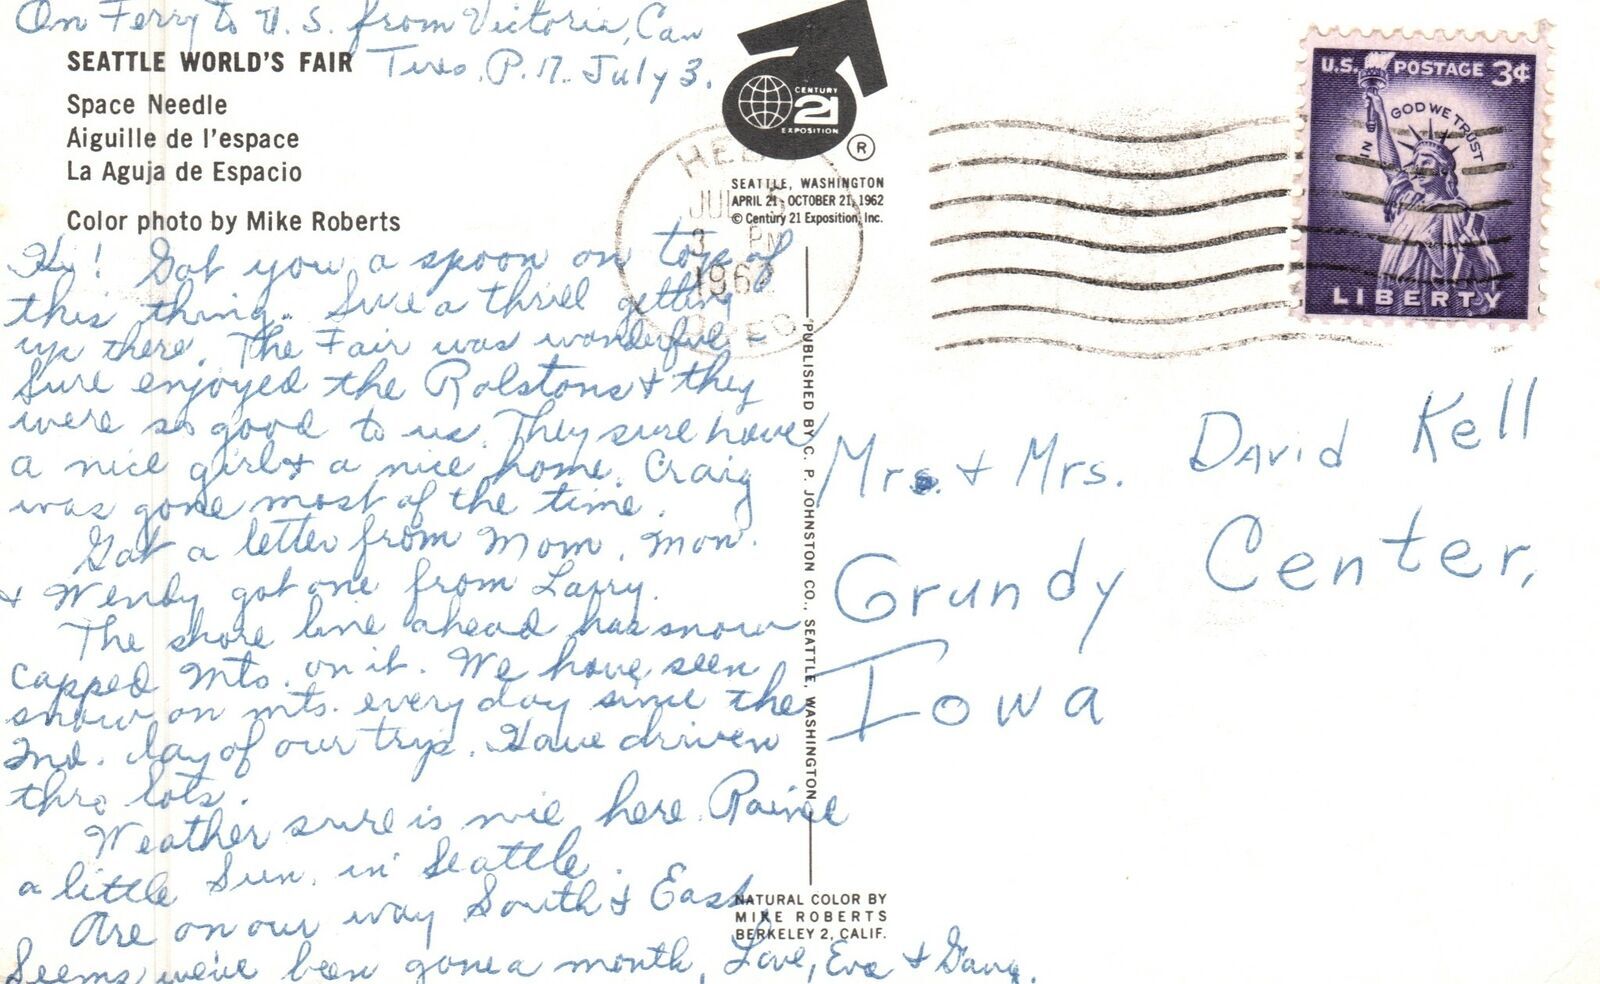 On Ferry to U.S. from Victoria, Can
Tues. P.M. July 3.
SEATTLE WORLD'S FAIR
Space Needle
Aiguille de l'espace
La Aguja de Espacio
Color photo by Mike Roberts
CENTURY
21
EXPOSITION
®
SEATTLE, WASHINGTON
APRIL 21 - OCTOBER 21, 1962
© Century 21 Exposition, Inc.
JUL
3 PM
1962
U.S. POSTAGE 3¢
IN GOD WE TRUST
LIBERTY
Hy! Got you a spoon on top of
this thing. Sure a thrill getting
up there. The Fair was wonderful -
Sure enjoyed the Rolstons & they
were so good to us. They sure have
a nice girl & a nice home. Craig
was gone most of the time.
Got a letter from Mom. Mon.
& Wendy got one from Larry.
The shore line ahead has snow
capped Mts. on it. We have seen
snow on mts. every day since the
2nd. day of our trip. Have driven
thro lots.
Weather sure is nice here. Rained
a little Sun. in Seattle.
Are on our way South & East
Seems we've been gone a month. Love, Eva &
PUBLISHED BY C. P. JOHNSTON CO., SEATTLE, WASHINGTON
Mrs. & Mrs. David Kell
Grundy Center,
Iowa
NATURAL COLOR BY
MIKE ROBERTS
BERKELEY 2, CALIF.